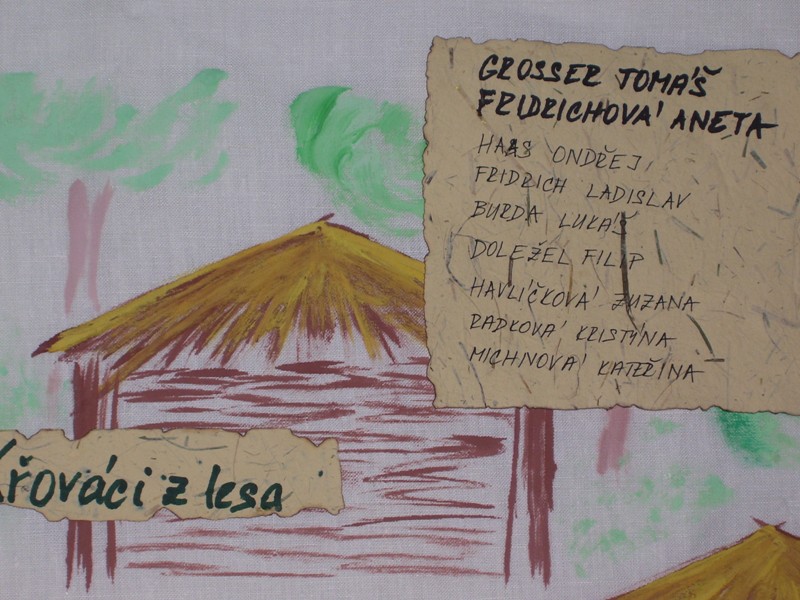 GROSSER TOMÁŠ
FRIDRICHOVÁ ANETA
HAAS ONDŘEJ
FRIDRICH LADISLAV
BURDA LUKÁŠ
DOLEŽEL FILIP
HAVLÍČKOVÁ ZUZANA
RADKOVÁ KRISTÝNA
MICHNOVÁ KATEŘINA
Křováci z lesa